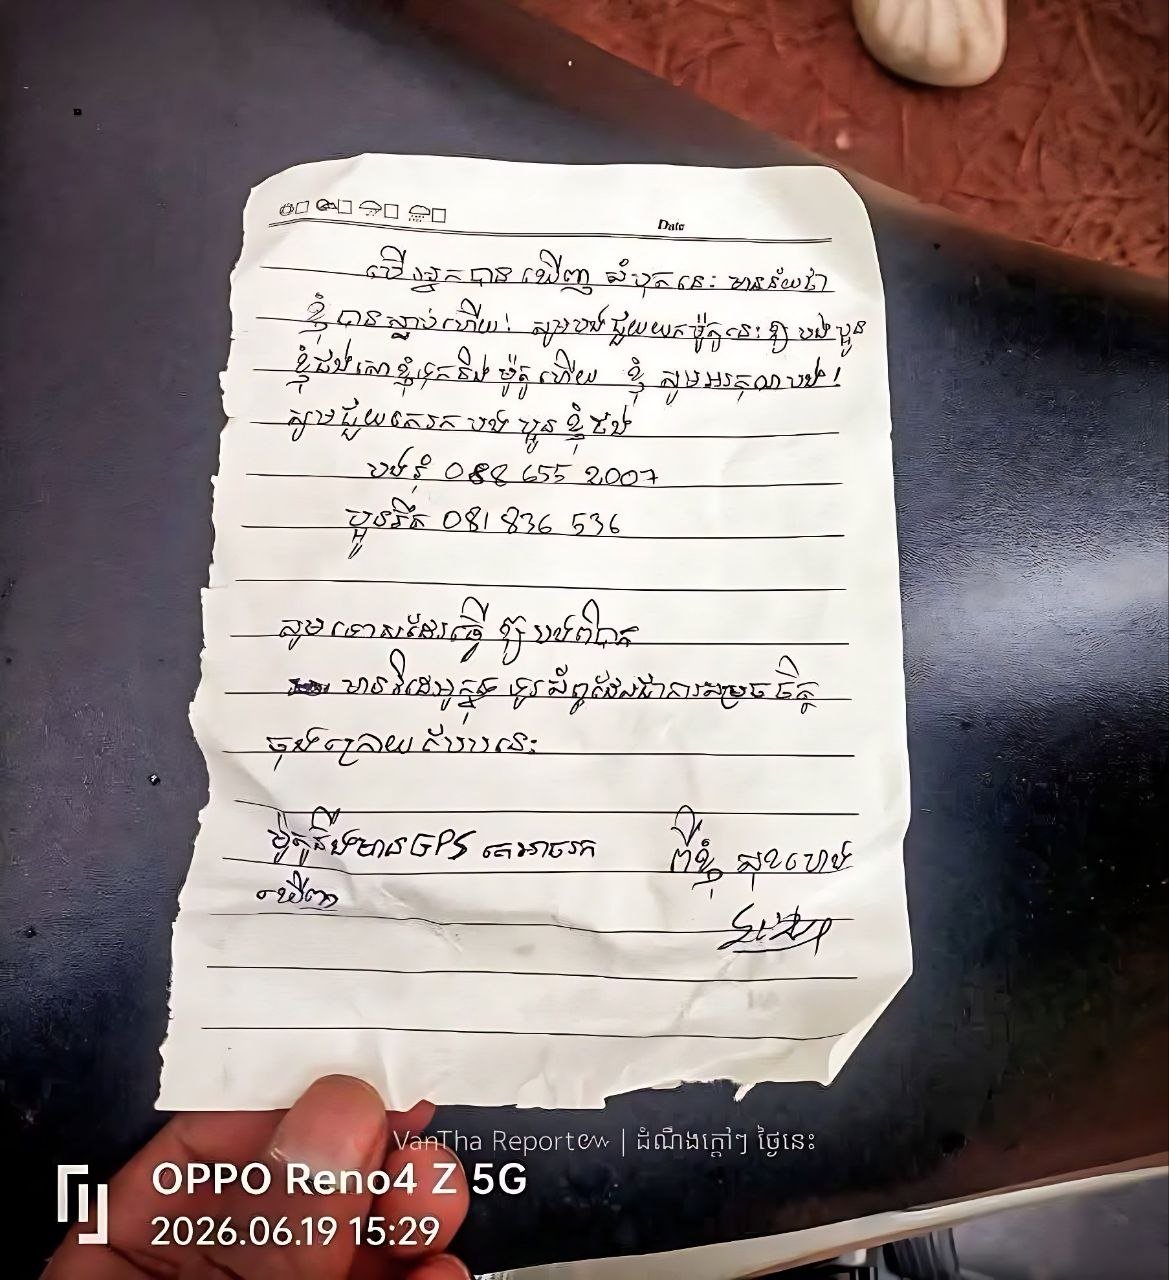 Date
បើអ្នកបានឃើញសំបុត្រនេះ មានន័យថា
ខ្ញុំបានស្លាប់ហើយ! សូមបងជួយយកម៉ូតូនេះឱ្យបងប្អូន
ខ្ញុំផង ខ្ញុំទុកនឹងម៉ូតូហើយ ខ្ញុំសូមអរគុណបង!
សូមជួយតេរកបងប្អូនខ្ញុំផង
បងនុំ 088 655 2007
ប្អូន 081 836 536
សូមទោសដែរធ្វើឱ្យបងពិបាក
មានវីដេអូក្នុងទូរស័ព្ទដែលជាការសម្រេចចិត្ត
ចុងក្រោយបែបនេះ
ម៉ូតូនឹងមាន GPS គេអាចរក
ឃើញ
ពីខ្ញុំ សុខហេង
VanTha Reporter | ដំណឹងក្តៅៗ ថ្ងៃនេះ
OPPO Reno4 Z 5G
2026.06.19 15:29